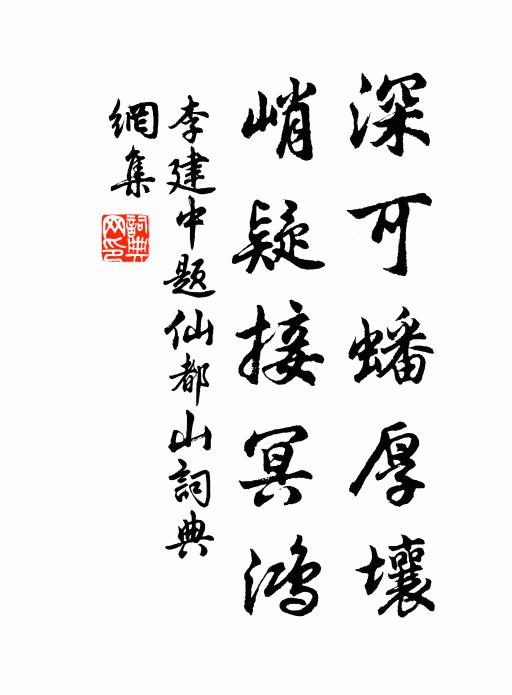 深可蟠厚壤
峭疑接冥鴻
李建中題仙都山詞典
網集
詞典
网印